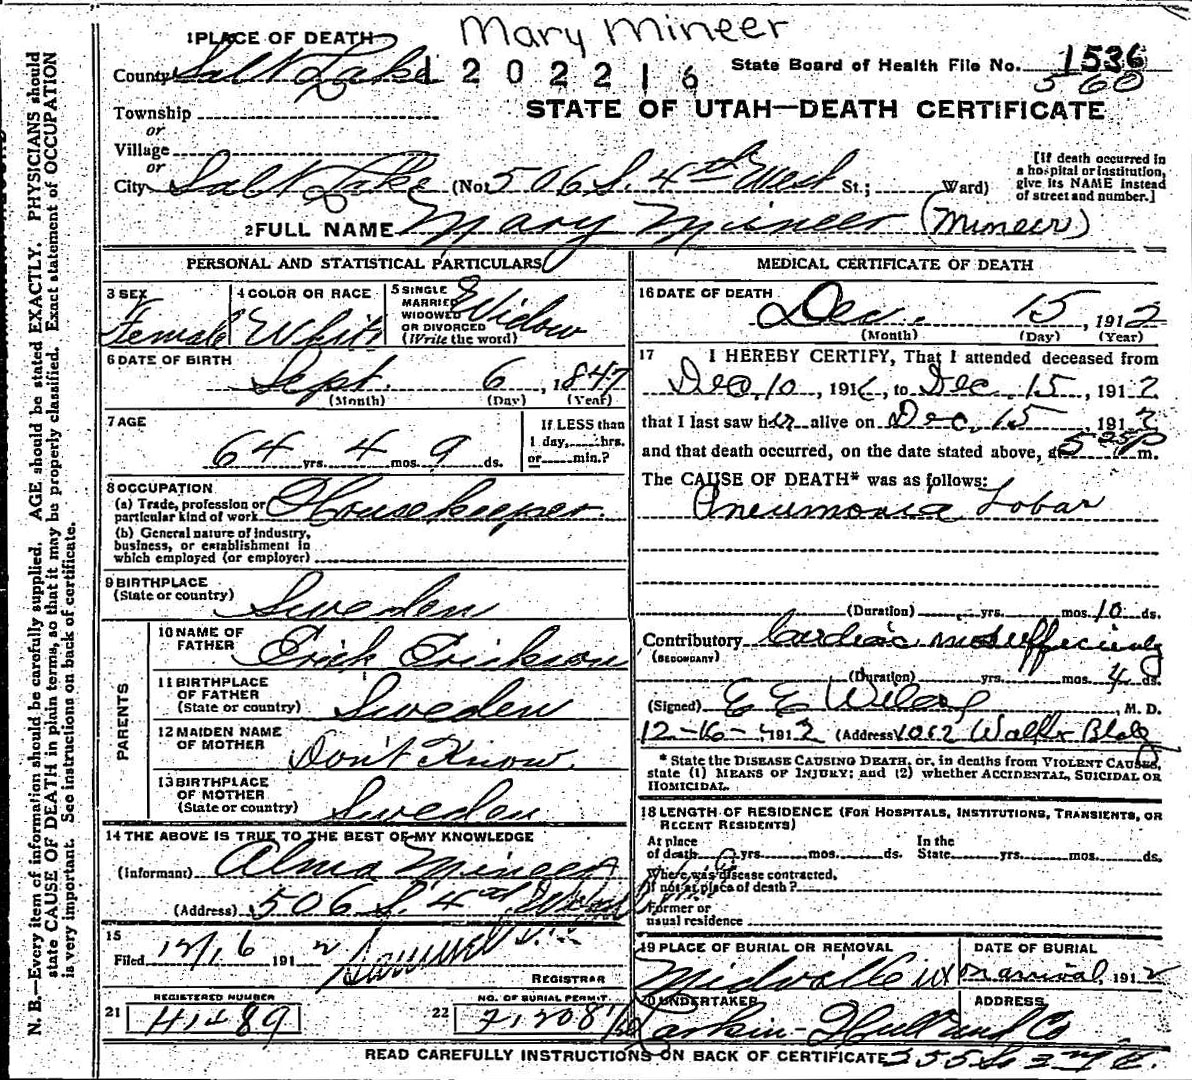 Mary Mineer
1 PLACE OF DEATH
County Salt Lake 1202216 State Board of Health File No. 1536
560
Township
STATE OF UTAH—DEATH CERTIFICATE
or
Village
or
City Salt Lake (No. 506 S. 4th West St.; Ward)
[If death occurred in
a hospital or institution,
give its NAME instead
of street and number.]
2 FULL NAME Mary Mineer (Mineer)
PERSONAL AND STATISTICAL PARTICULARS
3 SEX
Female
4 COLOR OR RACE
White
5 SINGLE
MARRIED
WIDOWED
OR DIVORCED
(Write the word)
Widow
6 DATE OF BIRTH
Sept. 6, 1847
(Month) (Day) (Year)
7 AGE
64 yrs. 4 mos. 9 ds.
If LESS than
1 day, hrs.
or min.?
8 OCCUPATION
(a) Trade, profession or
particular kind of work Housekeeper.
(b) General nature of industry,
business, or establishment in
which employed (or employer)
9 BIRTHPLACE
(State or country)
Sweden
PARENTS
10 NAME OF
FATHER
Erick Erickson
11 BIRTHPLACE
OF FATHER
(State or country)
Sweden
12 MAIDEN NAME
OF MOTHER
Don't Know.
13 BIRTHPLACE
OF MOTHER
(State or country)
Sweden
14 THE ABOVE IS TRUE TO THE BEST OF MY KNOWLEDGE
(Informant) Alma Mineer
(Address) 506 S. 4th West
15
Filed 12/16 1912
REGISTRAR
REGISTERED NUMBER
21
NO. OF BURIAL PERMIT
22
MEDICAL CERTIFICATE OF DEATH
16 DATE OF DEATH
Dec. 15, 1912
(Month) (Day) (Year)
17 I HEREBY CERTIFY, That I attended deceased from
Dec. 10, 1912, to Dec. 15, 1912
that I last saw her alive on Dec. 15 1912
and that death occurred, on the date stated above, at m.
The CAUSE OF DEATH* was as follows:
Pneumonia Lobar
(Duration) yrs. mos. 10 ds.
Contributory Cardiac insufficiency
(SECONDARY)
(Duration) yrs. mos. 4 ds.
(Signed) E E M. D.
12-16-1912 (Address)
* State the DISEASE CAUSING DEATH, or, in deaths from VIOLENT CAUSES,
state (1) MEANS OF INJURY; and (2) whether ACCIDENTAL, SUICIDAL OR
HOMICIDAL.
18 LENGTH OF RESIDENCE (FOR HOSPITALS, INSTITUTIONS, TRANSIENTS, OR
RECENT RESIDENTS)
At place
of death yrs. mos. ds.
In the
State yrs. mos. ds.
Where was disease contracted,
if not at place of death?
Former or
usual residence
19 PLACE OF BURIAL OR REMOVAL
Midvale
DATE OF BURIAL
on arrival, 1912
20 UNDERTAKER
Larkin-Hull und Co
ADDRESS
READ CAREFULLY INSTRUCTIONS ON BACK OF CERTIFICATE
N. B.—Every item of information should be carefully supplied. AGE should be stated EXACTLY. PHYSICIANS should
state CAUSE OF DEATH in plain terms, so that it may be properly classified. Exact statement of OCCUPATION
is very important. See instructions on back of certificate.